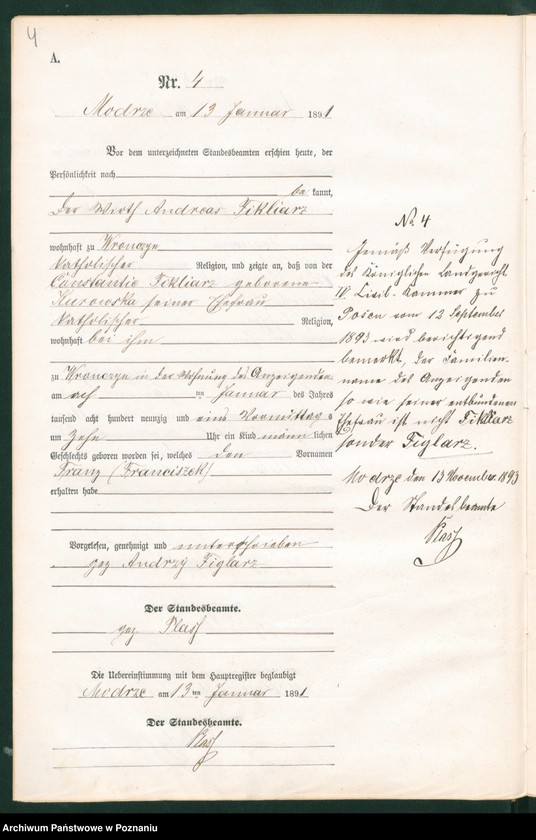 4
A.
Nr. 4
Modrze am 13 Januar 1891
Vor dem unterzeichneten Standesbeamten erschien heute, der
Persönlichkeit nach
be kannt,
Der Wirth Andreas Fikliarz
wohnhaft zu Wronczyn
katholischer Religion, und zeigte an, daß von der
Constantia Fikliarz geborene
Kurowska seiner Ehefrau
katholischer Religion,
wohnhaft bei ihm
zu Wronczyn in der Wohnung des Anzeigenden
am acht ten Januar des Jahres
tausend acht hundert neunzig und eins Vormittags
um Zehn Uhr ein Kind männlichen
Geschlechts geboren worden sei, welches den Vornamen
Franz (Franciszek)
erhalten habe
Vorgelesen, genehmigt und unterschrieben
gez Andrzy Figlarz
Der Standesbeamte.
gez.
Die Uebereinstimmung mit dem Hauptregister beglaubigt
Modrze am 13 ten Januar 1891
Der Standesbeamte.
No. 4
Gemäß Verfügung
des Königlichen Landgericht
IV. Civil-Kammer zu
Posen vom 12 September
1893 wird berichtigend
bemerkt, der Familien-
name des Anzeigenden
so wie seiner entbundenen
Ehefrau ist nicht Fikliarz
sonder Figlarz.
Modrze den 13 November 1893
Der Standesbeamte
Archiwum Państwowe w Poznaniu